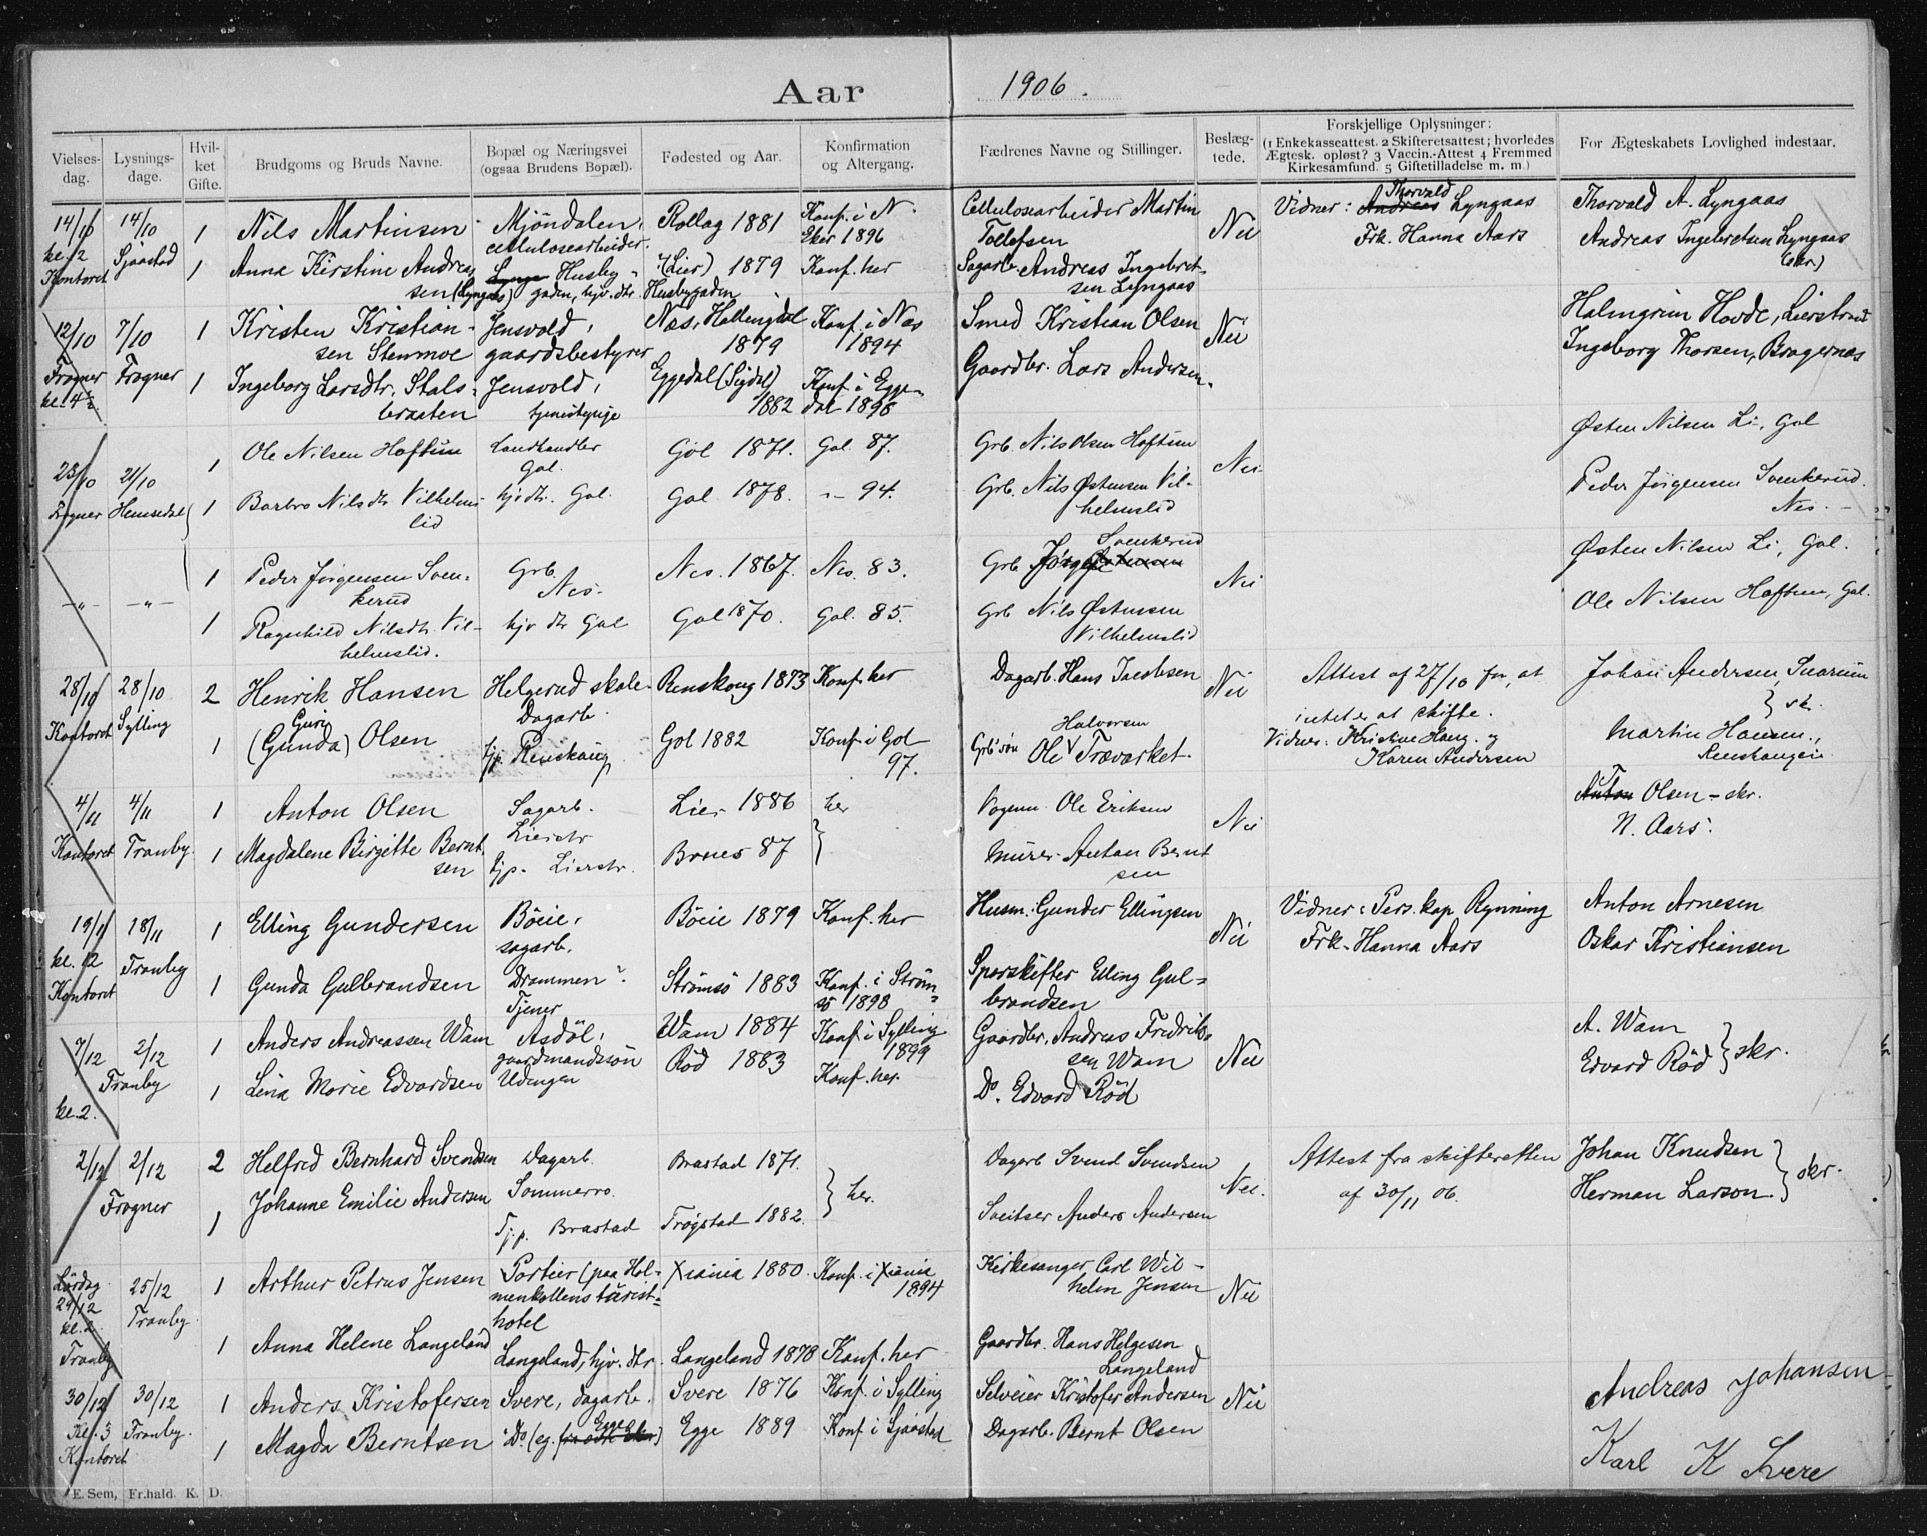 Aar 1906.
Vielses-dag. Lysnings-dage. Hvil-ket Gifte. Brudgoms og Bruds Navne. Bopæl og Næringsvei (ogsaa Brudens Bopæl). Fødested og Aar. Konfirmation og Altergang. Fædrenes Navne og Stillinger. Beslæg-tede. Forskjellige Oplysninger: (1 Enkekasseattest. 2 Skifteretsattest; hvorledes Ægtesk. opløst? 3 Vaccin.-Attest 4 Fremmed Kirkesamfund. 5 Giftetilladelse m. m.) For Ægteskabets Lovlighed indestaar.
14/10 14/10 1 Nils Martinsen Mjöndalen, Rollag 1881 Konf. i N. Cellulosearbeider Martin Nei Vidner: Andreas Thorvald Lyngaas Thorvald A. Lyngaas
kl. 2 Sjaastad cellulosearbeider. Eker 1896 Tollefsen Frk. Hanna Aars Andreas Ingebretsen Lyngaas
Kontoret 1 Anna Kirstine Andreas Husby- (Lier) 1879 Konf. her Sagarb. Andreas Ingebret- (skr.)
sen (Lyngaas) gaden, hjv. dtr. Husbygaden sen Lyngaas
12/10 7/10 1 Kristen Kristian- Jensvold, Næs, Hallingdal Konf. i Næs Smed Kristian Olsen Nei Halmgrim Hovde, Lierstrand
sen Stenmoe gaardsbestyrer 1879 1894 Ingeborg Thorsen, Bragernæs
Frogner Frogner 1 Ingeborg Larsdtr. Stals- Jensvold, Eggedal (Sigdal) Konf. i Egge- Gaardbr. Lars Andersen
kl. 4½ braaten tjenestepige 1882 dal 1898
23/10 21/10 1 Ole Nilsen Haftun Landhandler Gol 1871. Gol 87. Grb. Nils Olsen Haftun Nei Østen Nilsen Li, Gol
Gol.
Frogner Hemsedal 1 Barbro Nilsdtr Vilhelms- hjv dtr. Gol. Gol 1878. -"- 94. Grb. Nils Østensen Vil- Peder Jörgensen Svenkerud.
lid helmslid Nes.
-"- -"- 1 Peder Jörgensen Sven- Grb. Nes. 1867. Nes. 83. Grb Svenkerud Nei Østen Nilsen Li, Gol.
kerud Nes.
1 Ragnhild Nilsdtr. Vil- hjv dtr Gol Gol 1870. Gol. 85. Grb Nils Østensen Ole Nilsen Haftun, Gol.
helmslid. Vilhelmslid
28/10 28/10 2 Henrik Hansen Helgerud skole- Renskoug 1873 Konf. her Dagarb. Hans Jacobsen Nei Attest af 27/10 for, at Johan Andersen,
Kontoret Sylling Dagarb. intet er at skifte. skr.
1 Guri (Gunda) Olsen tjp. Renskaug Gol 1882 Konf. i Gol Grb's søn Ole Halvorsen Trævarket. Vidner: Kristine Haug. og Martin Hansen,
97. Karen Andersen
4/11 4/11 1 Anton Olsen Sagarb. Lier 1886 her Vognm. Ole Eriksen Nei Anton T Olsen - skr.
Lierstr N. Aars.
Kontoret Tranby. 1 Magdalene Birgitte Bernt- tjp. Lierstr. 87 Murer Anton Bernt
sen sen
19/11 18/11 1 Elling Gundersen Böeie, Böeie 1879 Konf. her Husm. Gunder Ellingsen Nei Vidner: Pers. kap Rynning Anton Arnesen
kl. 12 Tranby sagarb. Frk. Hanna Aars Oskar Kristiansen
Kontoret 1 Gunda Gulbrandsen Drammen? Strömsö 1883 Konf. i Ström- Sporskifter Elling Gul-
Tjener sö 1898 brandsen
7/12 2/12 1 Anders Andreassen Wam Asdöl, Wam 1884 Konf. i Sylling Gaardbr. Andreas Fredrik- Nei A. Wam
gaardmandssön 1899 sen Wam Edvard Röd skr.
Tranby 1 Lina Marie Edvardsen Udengen Röd 1883 Konf. her. Do. Edvard Röd
kl. 2.
2/12 2/12 2 Helfred Bernhard Svendsen Dagarb. Brastad 1871. her. Dagarb Svend Svendsen Nei. Attest fra skifteretten Johan Knudsen
Frogner Sommerro. af 30/11 06. Herman Larson. skr.
1 Johanne Emilie Andersen Tj.p. Brastad Trøgstad 1882. Sveitser Anders Andersen
Lördag 25/12 1 Arthur Petrus Jensen Portier (paa Hol- Xiania 1880. Konf. i Xiania Kirkesanger Carl Wil- Nei
29/12 Tranby. menkollens turist- 1894 helm Jensen
kl. 2 hotel
Tranby 1 Anna Helene Langeland Langeland, hjv. dtr. Langeland 1878 Konf. her Gaardbr. Hans Helgesen
Langeland
30/12 30/12 1 Anders Kristofersen Svere, dagarb. Svere 1876 Konf. i Sylling Selveier Kristofer Andersen Nei Andreas Johansen
Kl. 3 Tranby.
Kontoret 1 Magda Berntsen Do (eg. Egge) Egge 1889 Konf. i Sjaastad Dagarb. Bernt Olsen Karl K Svere
E. Sem, Fr.hald. K. D.